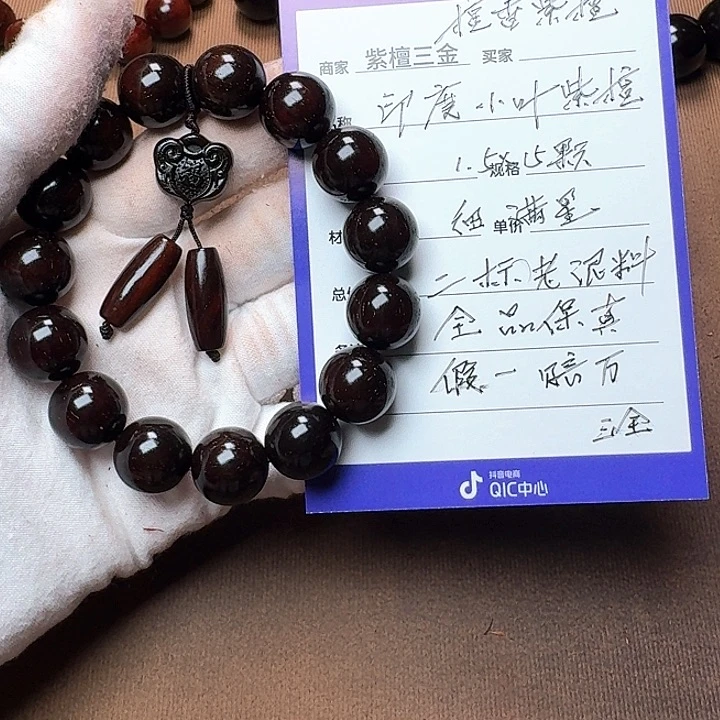 檀壹紫檀
商家 紫檀三金 买家
称 印度小叶紫檀
规格 1.5×15颗
材 细满星 单价
总 二标老泥料
全品保真
假一赔万
三金
抖音电商
QIC中心